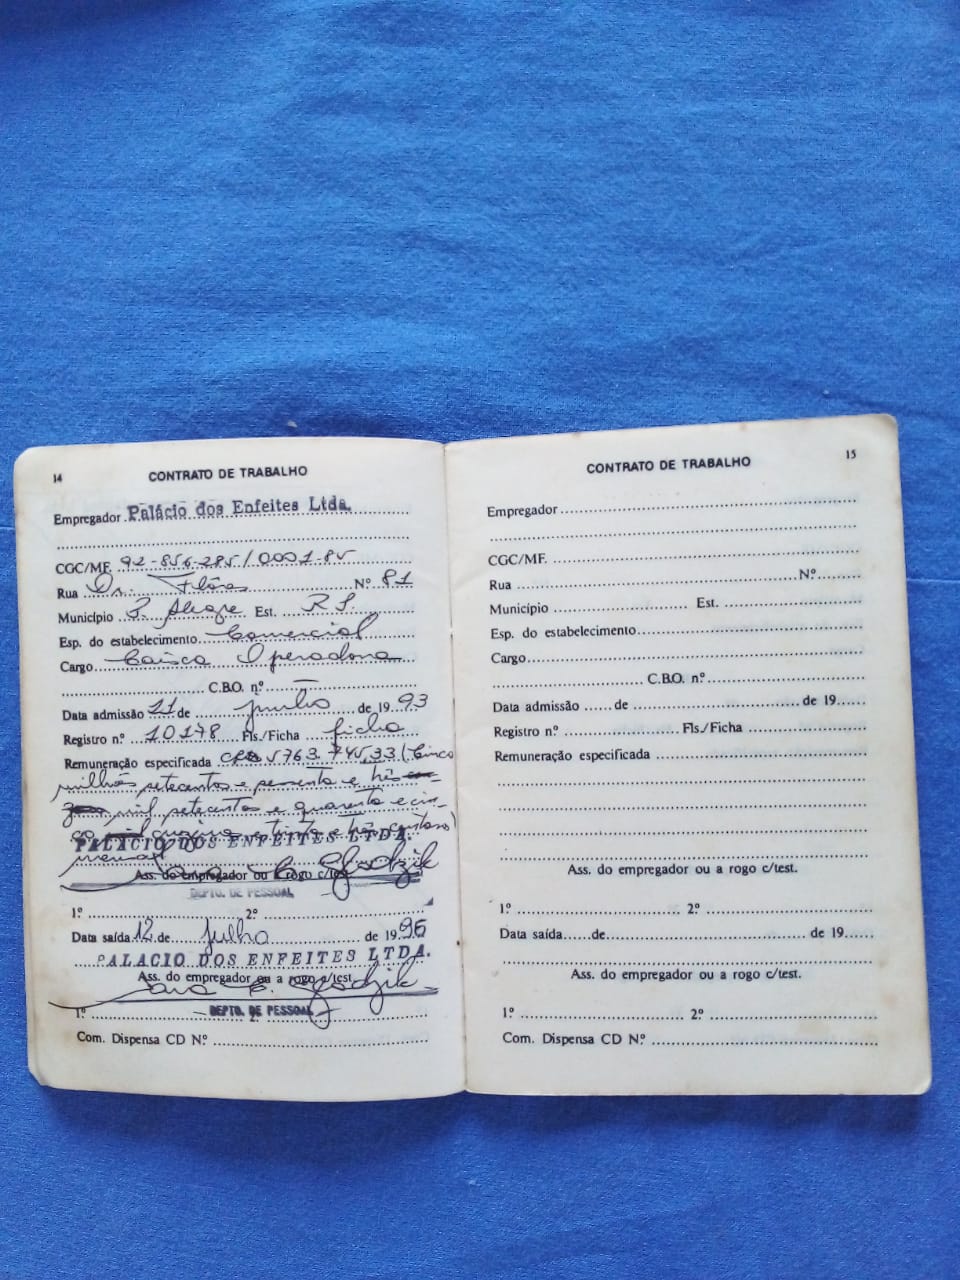 14
CONTRATO DE TRABALHO
Empregador Palácio dos Enfeites Ltda.
CGC/MF. 92-856-285/0001-85
Rua Dr. Flôres Nº 81
Município P. Alegre Est. R S.
Esp. do estabelecimento Comercial
Cargo Caixa Operadora
C.B.O. nº —
Data admissão 11 de junho de 1993
Registro nº 10178 Fls./Ficha ficha
Remuneração especificada 5.763.745,33 (Cinco
milhões setecentos e sessenta e três
mil setecentos e quarenta e cin-
co
PALACIO DOS ENFEITES LTDA.
mensal
Ass. do empregador ou a rogo c/test.
DEPTO. DE PESSOAL
1º 2º
Data saída 12 de julho de 1996
PALACIO DOS ENFEITES LTDA.
Ass. do empregador ou a rogo c/test.
1º 2º
DEPTO. DE PESSOAL
Com. Dispensa CD Nº
15
CONTRATO DE TRABALHO
Empregador
CGC/MF.
Rua Nº
Município Est.
Esp. do estabelecimento
Cargo
C.B.O. nº
Data admissão de de 19
Registro nº Fls./Ficha
Remuneração especificada
Ass. do empregador ou a rogo c/test.
1º 2º
Data saída de de 19
Ass. do empregador ou a rogo c/test.
1º 2º
Com. Dispensa CD Nº